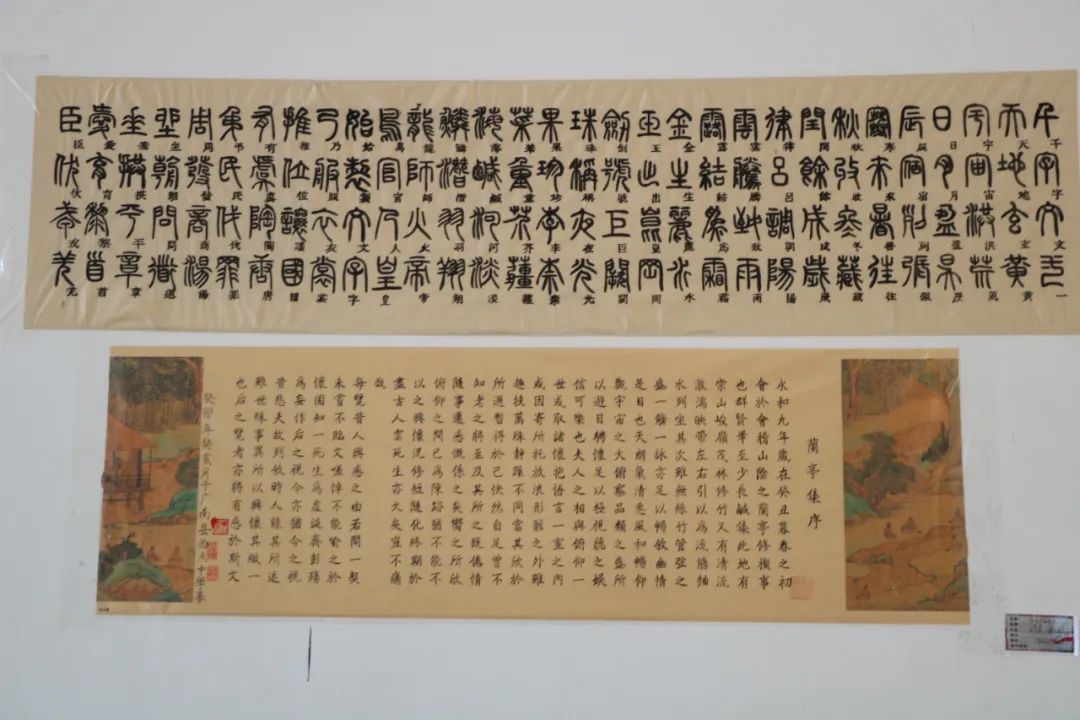 千字文一
天地玄黃
宇宙洪荒
日月盈昃
辰宿列張
寒來暑往
秋收冬藏
閏餘成歲
律呂調陽
雲騰致雨
露結為霜
金生麗水
玉出崑岡
劍號巨闕
珠稱夜光
果珍李柰
菜重芥薑
海鹹河淡
鱗潛羽翔
龍師火帝
鳥官人皇
始製文字
乃服衣裳
推位讓國
有虞陶唐
弔民伐罪
周發商湯
坐朝問道
垂拱平章
愛育黎首
臣伏戎羌
蘭亭集序
永和九年歲在癸丑暮春之初
會於會稽山陰之蘭亭修禊事
也群賢畢至少長鹹集此地有
崇山峻嶺茂林修竹又有清流
激湍映帶左右引以為流觴曲
水列坐其次雖無絲竹管弦之
盛一觴一詠亦足以暢敘幽情
是日也天朗氣清惠風和暢仰
觀宇宙之大俯察品類之盛所
以遊目騁懷足以極視聽之娛
信可樂也夫人之相與俯仰一
世或取諸懷抱悟言一室之內
或因寄所托放浪形骸之外雖
趣捨萬殊靜躁不同當其欣於
所遇暫得於己快然自足曾不
知老之將至及其所之既倦情
隨事遷感慨係之矣嚮之所欣
俯仰之間已為陳跡猶不能不
以之興懷況修短隨化終期於
盡古人雲死生亦大矣豈不痛
哉
每覽昔人興感之由若閤一契
未嘗不臨文嗟悼不能喻之於
懷固知一死生為虛誕齊彭殤
為妄作后之視今亦猶今之視
昔悲夫故列敘時人錄其所述
雖世殊事異所以興懷其緻一
也后之覽者亦將有感於斯文
癸卯年癸亥月于广南县中学